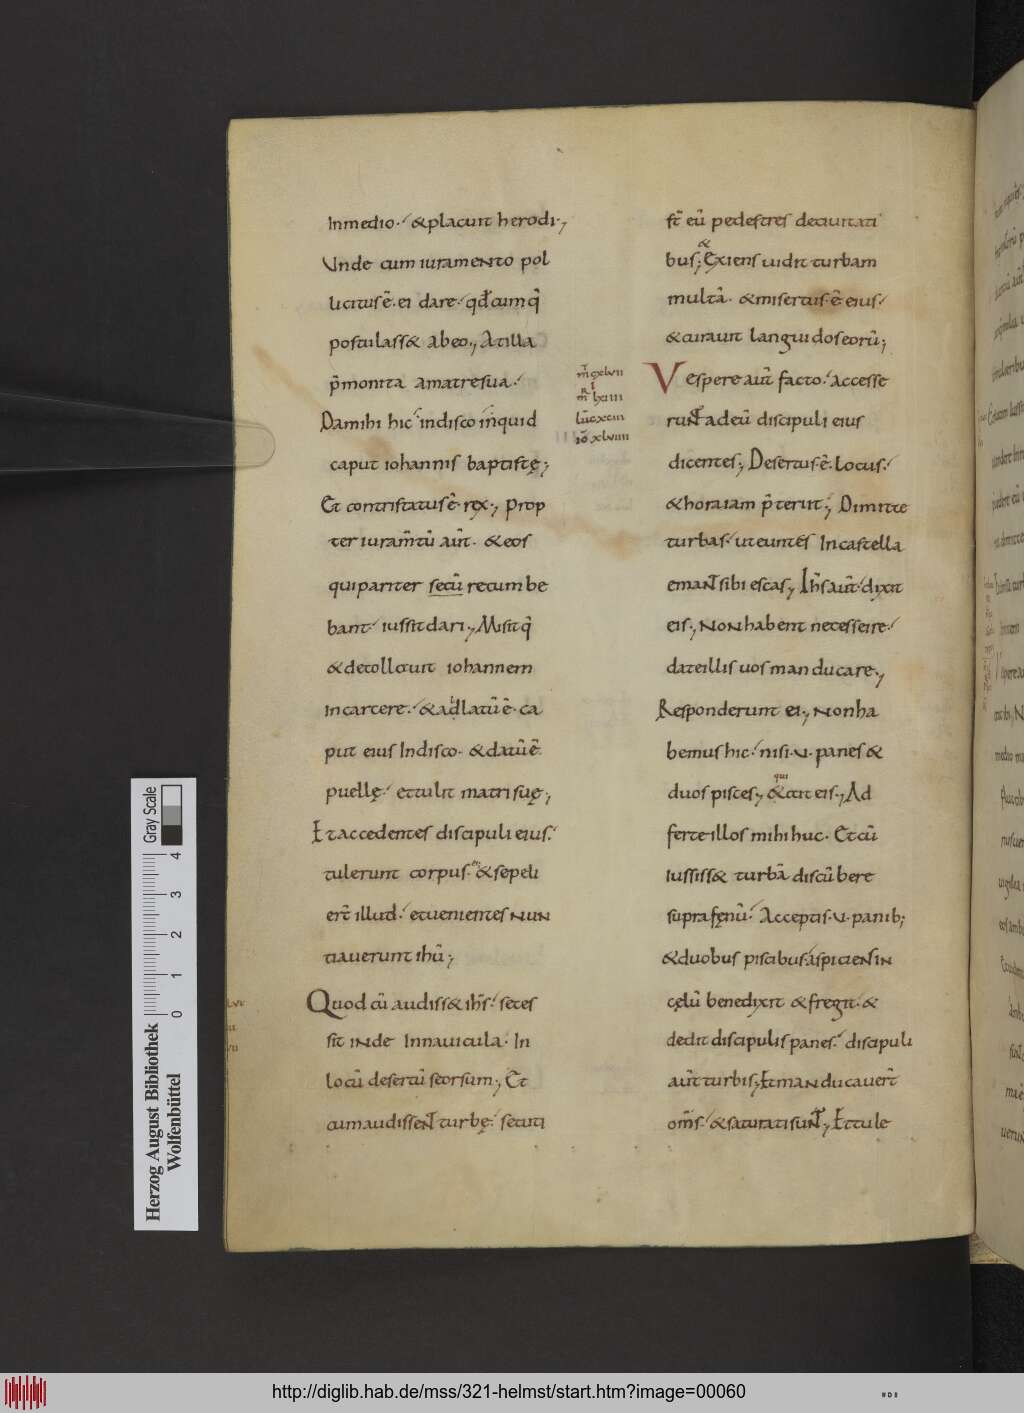 Inmedio. &placuit herodi.,
Unde cum iuramento pol
licitusē. ei dare. qđcumq̄
postulass& abeo., Atilla
p̄monita amatresua.
Damihi hic indisco inquid
caput iohannis baptistę;
Et contristatusē. rex., Prop
ter iuram̄tū aūt. &eos
quipariter secū recumbe
bant iussitdari., Misitq̄
&decollauit iohannem
Incarcere. &adlatūē. ca
put eius Indisco. &datūē
puellę. ettulit matrisuę;
Etaccedentes discipuli eius.
tulerunt corpus. &sepeli
er̄t illud. etuenientes NUN
tiauerunt ihū;
Quod cū audiss& ihs̄. seces
sit INde Innauicula. In
locū desertū seorsum., Et
cumaudissent turbę. secuti
m̄ cxlvii
I
m̄r lxiiii
lūc xciii
iō xlviiii
st̄ eū pedestres deciuitati
&
bus; Exiens uidit turbam
multā. &misertus.ē eius.
&curauit languidoseorū;
Vespere aūt facto. accesse
runt adeū discipuli eius
dicentes; Desertus.ē. locus.
&horaiam p̄teriit; Dimitte
turbas. uteuntes Incastella
emant sibi escas; Ihs̄ aūt. dixit
eis., NONhabent necesseire.
dateillis uos manducare.,
Responderunt ei., NONha
bemus hic. nisi.V. panes &
qui
duos pisces., &ait eis., Ad
ferteillos mihi huc. Etcū
Iussiss& turbā discūbere
suprafęnū. Acceptis.V.panib;
&duobus piscibus. aspiciensIN
cęlū benedixit &fregit. &
dedit discipulis panes. discipuli
aūt turbis; Etmanducauer̄t
om̄s. &saturatisunt., Ettule
Herzog August Bibliothek
Wolfenbüttel
0 1 2 3 4
Gray Scale
http://diglib.hab.de/mss/321-helmst/start.htm?image=00060